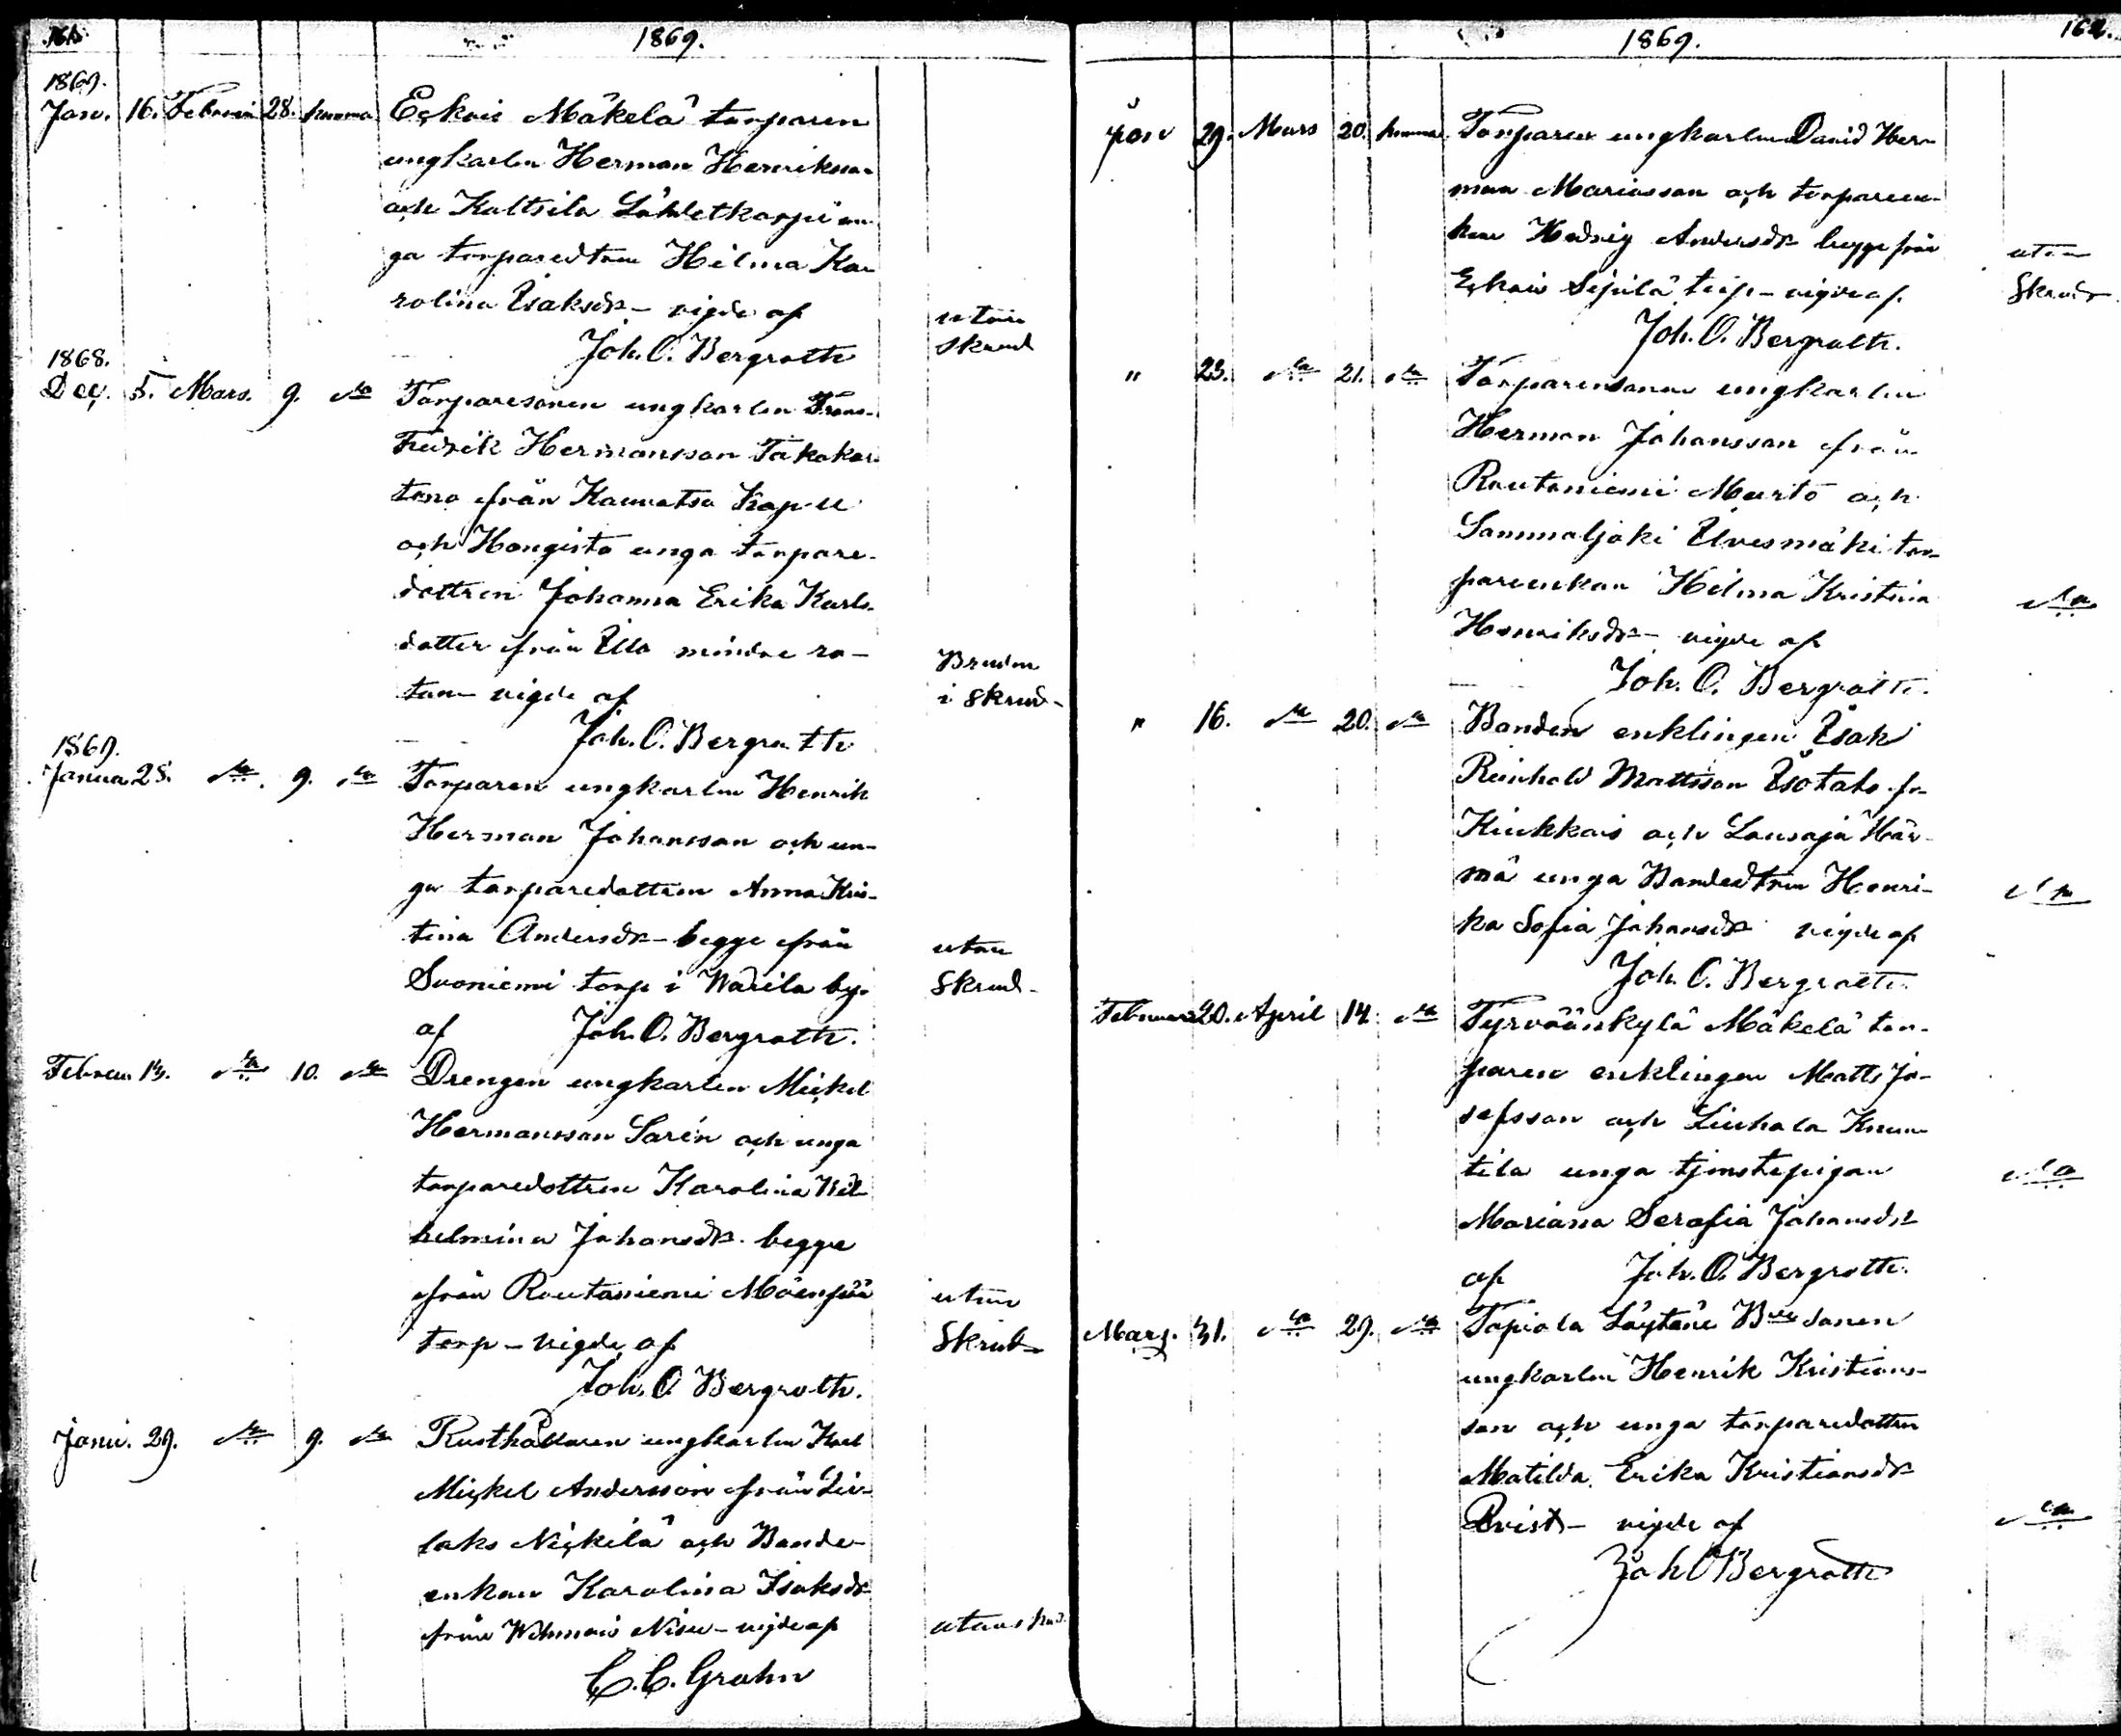 1869.
1869.
Janv. 16. Februari 28. hemma Eckois Mäkelä torparen
ungkarlen Herman Henriksson
och Kaltsila Lähdetkorpi un-
ga torparedtren Hilma Ka-
rolina Isaksdr – vigde af
utan
Joh. O. Bergroth
skrud
1868.
Dec. 5. Mars. 9. do Torparesonen ungkarlen Frans
Fredrik Hermansson Takakar-
tano från Kauvatsa Kapell
och Hongisto unga torpare-
dottren Johanna Erika Karls-
dotter från Illo mindre ro-
Bruden
tan – vigde af
i skrud –
Joh. O. Bergroth
1869.
Janua 28. do 9. do Torparen ungkarlen Henrik
Herman Johansson och un-
ga torparedottren Anna Kris-
tina Andersdr – begge från
utan
Suoniemi torp i Warila by.
skrud –
af Joh. O. Bergroth.
Februa 13. do 10. do Drengen ungkarlen Mickel
Hermansson Sarén och unga
torparedottren Karolina Wil-
helmina Johansdr. begge
från Rautaniemi Mäenpää
utan
torp – vigde af
skrud –
Joh. O Bergroth.
Janu. 29. do 9. do Rusthållaren ungkarlen Karl
Mickel Andersson från Liu-
laks Nickilä och Bonde-
enkan Karolina Isaksdr
från Wehmais Nisu – vigde af
utan skrud.
C. C. Grahn
1869.
162.
Janv 29. Mars 20. hemma Torparen ungkarlen David Her-
man Mariasson och torpareen-
kan Hedvig Andersdr begge från
utan
Eckois Sipilä torp – vigde af
skrud
Joh. O. Bergroth.
" 23. do 21. do Torparesonen ungkarlen
Herman Johansson från
Rautaniemi Murto och
Sammaljoki Ilvesmäki tor-
pareenkan Hilma Kristina
do
Henriksdr – vigde af
Joh. O. Bergroth.
" 16. do 20. do Bonden enklingen Isak
Reinhold Mattsson Isotalo fr
Kiukkois och Lousaja Här-
mä unga Bondedtren Henri-
do
ka Sofia Johansdr vigde af
Joh. O. Bergroth.
Februari 20. April 14. do Tyrväänkylä Mäkelä tor-
paren enklingen Matts Jo-
sefsson och Liuhala Knuu-
tila unga tjenstepigan
do
Mariana Serafia Johansdr
af Joh. O. Bergroth.
Mars. 31. do 29. do Tapiola Löytäne Bondesonen
ungkarlen Henrik Kristians-
son och unga torparedottren
Matilda Erika Kristiansdr
Qvist – vigde af
do
Joh O Bergroth